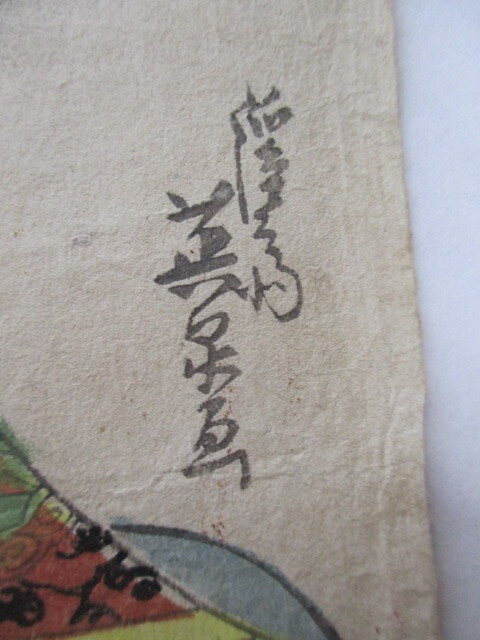 應需
英泉画